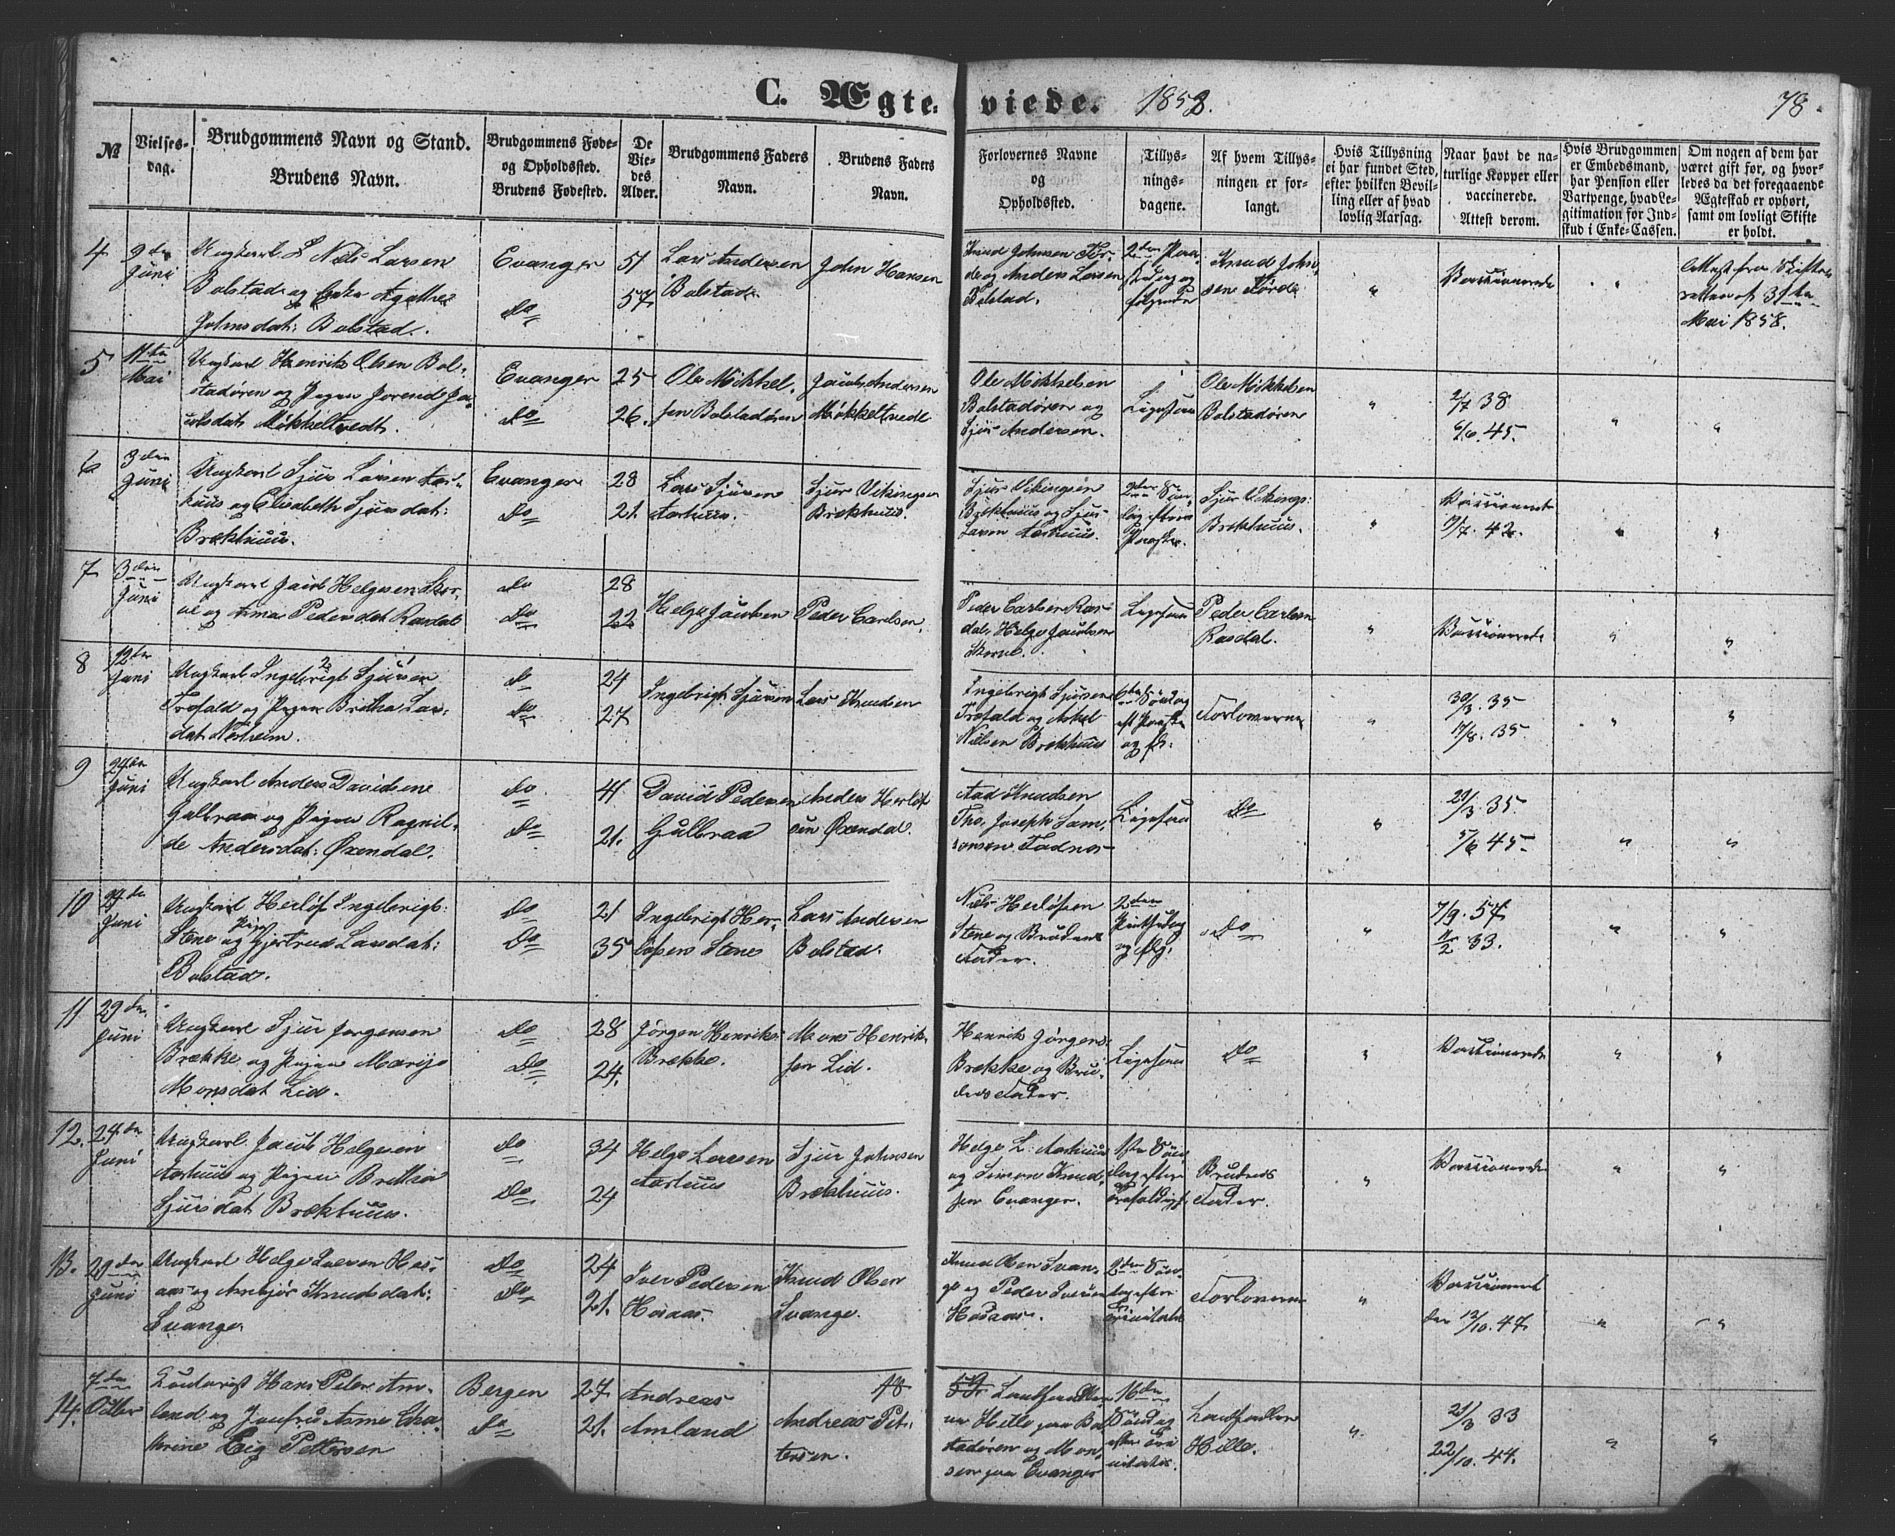 C. Ægte-
viede. 1858.
78.
№
Vielses-
dag.
Brudgommens Navn og Stand.
Brudens Navn.
Brudgommens Føde-
og Opholdssted.
Brudens Fødested.
De
Vie-
des
Alder.
Brudgommens Faders
Navn.
Brudens Faders
Navn.
Forlovernes Navne
og
Opholdssted.
Tillys-
nings-
dagene.
Af hvem Tillys-
ningen er for-
langt.
Hvis Tillysning
ei har fundet Sted,
efter hvilken Bevil-
ling eller af hvad
lovlig Aarsag.
Naar havt de na-
turlige Kopper eller
vaccinerede.
Attest derom.
Hvis Brudgommen
er Embedsmand,
har Pension eller
Vartpenge, hvad Le-
gitimation for Ind-
skud i Enke-Cassen.
Om nogen af dem har
været gift før, og hvor-
ledes da det foregaaende
Ægteskab er ophørt,
samt om lovligt Skifte
er holdt.
4
9de
Juni
Ungkarl L Nils Larsen
Bolstad og Enke Agathe
Johnsdat: Bolstad.
Evanger
do
51
57
Lars Andersen
Bolstad
John Hansen
Knud Johnsen Før-
de og Anders Larsen
Bolstad.
2den Paa-
og
følgende
Knud John-
sen Førde
"
Vaccinerede
"
Attest fra Skifte-
retten af 31te
Mai 1858.
5
11te
Mai
Ungkarl Henrik Olsen Bol-
stadøren og Pigen Jorend Ja-
cobsdat: Mykkeltvedt.
Evanger
do
25
26.
Ole Mikkel-
sen Bolstadøren
Jacob Andersen
Mykkeltvedt
Ole Mikkelsen
Bolstadøren og
Sjur Andersen.
Ligesaa
Ole Mikkelsen
Bolstadøren
"
2/7 38
6/6. 45.
"
"
6
3die
Juni
Ungkarl Sjur Larsen Aar-
huus og Elisabeth Sjursdat:
Brækhuus.
Evanger
Do
28
21.
Lars Sjursen
Aarhuus.
Sjur Vikingsen
Brækhuus.
Sjur Vikingsen
Brækhuus og Sjur
Larsen Aarhuus.
2den Søn-
dag efter
Paaske.
Sjur Vikings:
Brækhuus.
"
Vaccineret
17/7. 42.
"
"
7
3die
Juni
Ungkarl Jacob Helgesen Skor-
ve og Anna Pedersdat Rasdal
do
Do
28
22
Helge Jacobsen
Peder Carlsen.
Peder Carlsen Ras-
dal. Helge Jacobsen
Skorve.
Ligesaa
Peder Carlsen
Rasdal.
"
Vaccinerede
"
"
8
12te
Juni
Ungkarl Ingebrigt Sjursen
Trefald og Pigen Britha Lars-
dat Nesheim.
do
do
24
27
Ingebrigt Sjursen
Lars Knudsen
Ingebrigt Sjursen
Trefald og Askel
Nielsen Brækhuus
6te Søndag
eft Paaske
og fl:
Forloverne
"
30/3. 35
17/8. 35
"
"
9
24de
Juni
Ungkarl Anders Davidsen
Gulbraa og Pigen Ragnil-
de Andersdat: Øxendal.
do
do
41
21.
David Pedersen
Gulbraa
Anders Herlof-
sen Øxendal.
Aad Knudsen
Tho. Joseph Sam-
sonsen Fadnes
Ligesaa
do
"
29/3. 35.
5/6 45
"
"
10
24de
Juni
Ungkarl Herlof Ingebrigt:
Stene og Pig Gjertrud Larsdat:
Bolstad.
Do
Do
21
35
Ingebrigt Her-
lofsen Stene
Lars Andersen
Bolstad.
Niels Herlofsen
Stene og Brudens
Fader.
2den
Pintsedag
og flg:
Do
"
7/9. 57
/2. 33.
"
"
11
29de
Juni
Ungkarl Sjur Jørgensen
Brække og Pigen Marijo
Monsdat Lid.
do
Do
28
24.
Jørgen Henriks:
Brække.
Mons Henrik-
sen Lid.
Henrik Jørgens:
Brække og Bru-
dens Fader.
Ligesaa
do
"
Vaccinerede
"
"
12.
24de
Juni
Ungkarl Jacob Helgesen
Aarhuus og Pigen Britha
Sjursdat Brækhuus.
do
Do
34
24
Helge Larsen
Aarhuus
Sjur Johnsen
Brækhuus.
Helge L: Aarhuus
og Simon Knud-
sen Evanger.
1ste Søn-
dag efter
Trefoldigh
Brudens
Fader.
"
Vaccinerede
"
"
13.
29de
Juni
Ungkarl Helge Iversen Hos-
aas og Anbjør Knudsdat:
Evanger
Do
Do
24
21.
Iver Pedersen
Hosaas.
Knud Olsen
Evanger.
Knud Olsen Evan-
ger og Peder Iversen
Hosaas.
2den Søn-
dag efter
Trinitatis
Forloverne
"
Vaccineret
den 12/10. 47.
"
"
14.
7de
Octbr
Hans Peter Am-
land og Jomfru Anna Cha-
thrine Leig Pettersen
Bergen
do
27
21.
Andreas
Amland
48
Andreas Pet-
tersen.
Landhandler
Hille paa Bol-
stadøren og Mon-
sen paa Evanger
16de
Søndag
efter Tri-
nitatis.
Landhandler
Hille.
"
21/3 33
22/10. 44.
"
"